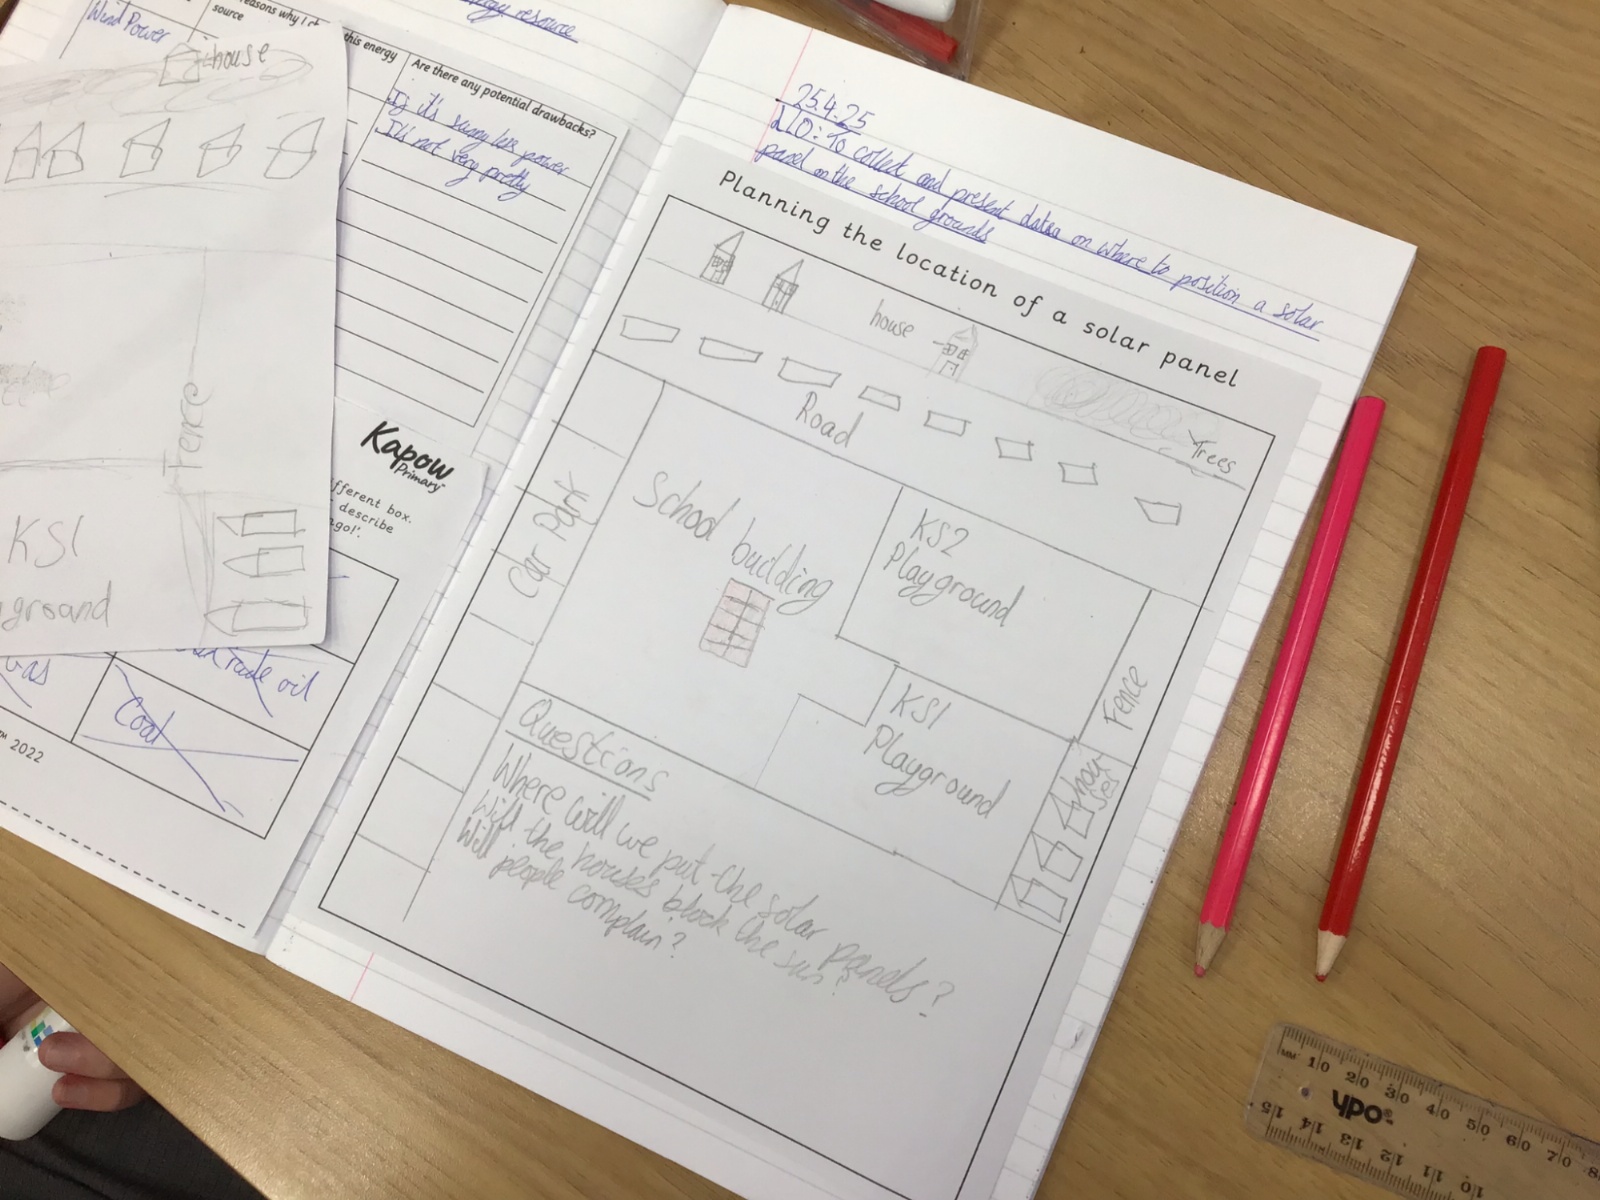 Wind Power
reasons why I
source
this energy
Are there any potential drawbacks?
If it's sunny less power
It's not very pretty
energy resource
house
Fence
KS1
ground
Kapow
Primary
different box.
describe
oil
Coal
2022
25.4.25
L.O: To collect and present data on where to position a solar
panel on the school grounds
Planning the location of a solar panel
house
Trees
Road
Car Park
School building
KS2
Playground
KS1
Playground
Fence
hou-
ses
Questions
Where will we put the solar panels?
Will the houses block the sun?
Will people complain?
MM 10 20 30 40 50 60 70 8
ypo
15 14 13 12 11 10